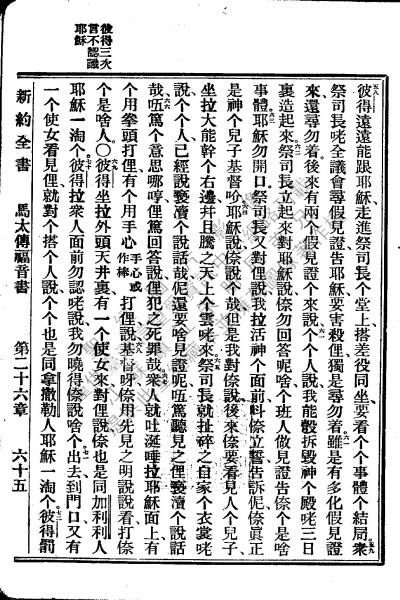 彼得三次
言不認識
耶穌
新約全書　馬太傳福音書　第二十六章　六十五
彼得遠遠能跟耶穌、走進祭司長个堂上、搭差役同坐、要看个个事體个結局。衆
祭司長咾全議會、尋假見證告耶穌、要害殺俚、獨是尋勿着、雖是有多化假見證
來、還尋勿着、後來有兩个假見證个來、說、个个人說、我能彀拆毀神个殿咾、三日
裏造起來、祭司長立起來對耶穌說、倷勿回答呢啥、个班人做見證告倷个是啥
事體、耶穌勿開口。祭司長又對俚說、我拉活神个面前、料倷立誓告訴伲、倷眞正
是神个兒子基督吤、耶穌說、倷說个哉、但是我對倷說、後來倷要看見人个兒子
坐拉大能幹个右邊、并且騰之天上个雲咾來、祭司長就扯碎之自家个衣裳咾
說、个个人、已經說褻瀆个說話哉、伲還要啥見證呢、㑚篤聽見之俚褻瀆个說話
哉、㑚篤个意思哪哼、俚篤回答說、俚犯之死罪哉。衆人就吐涎唾拉耶穌面上、有
个用拳頭打俚、有个用手心手心或作棒打俚、說、基督呀、倷用先見之明說說看、打倷
个是啥人○彼得坐拉外頭天井裏、有一个使女來對俚說、倷也是同加利利人
耶穌一淘个、彼得拉衆人面前勿認咾、說、我勿曉得倷說啥个、出去到門口、又有
一个使女看見俚、就對个搭个人說、个个也是同拿撒勒人耶穌一淘个、彼得罰